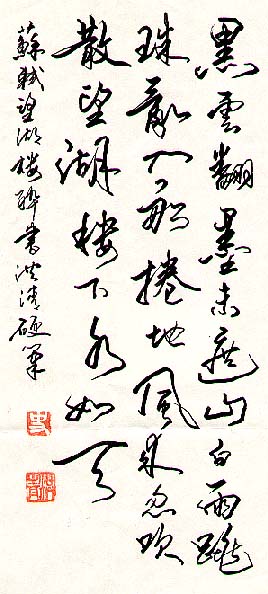 黑雲翻墨未遮山白雨跳
珠亂入船捲地風來忽吹
散望湖樓下水如天
蘇軾望湖樓醉書洪清硬筆